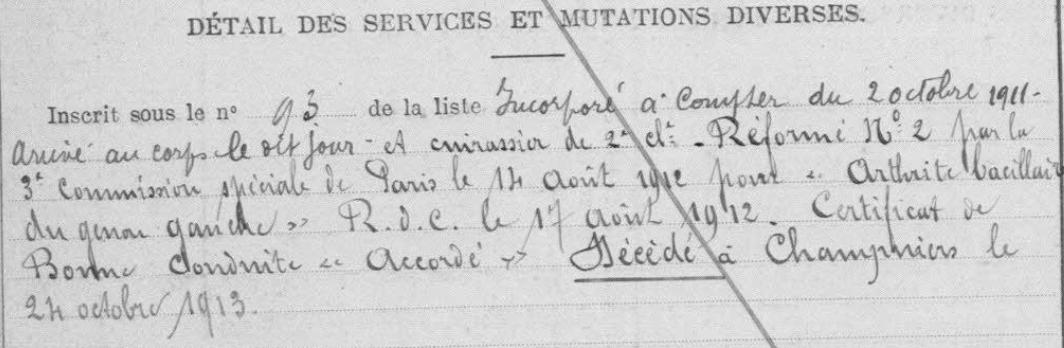 DÉTAIL DES SERVICES ET MUTATIONS DIVERSES.
Inscrit sous le n° 93 de la liste Incorporé à compter du 2 octobre 1911.
Arrivé au corps le dit jour - et cuirassier de 2e cl: - Réformé N° 2 par la
3e Commission spéciale de Paris le 14 Août 1912 pour « Arthrite bacillaire
du genou gauche » R.D.C. le 17 Août 1912. Certificat de
Bonne Conduite « Accordé » Décédé à Champniers le
24 octobre 1913.